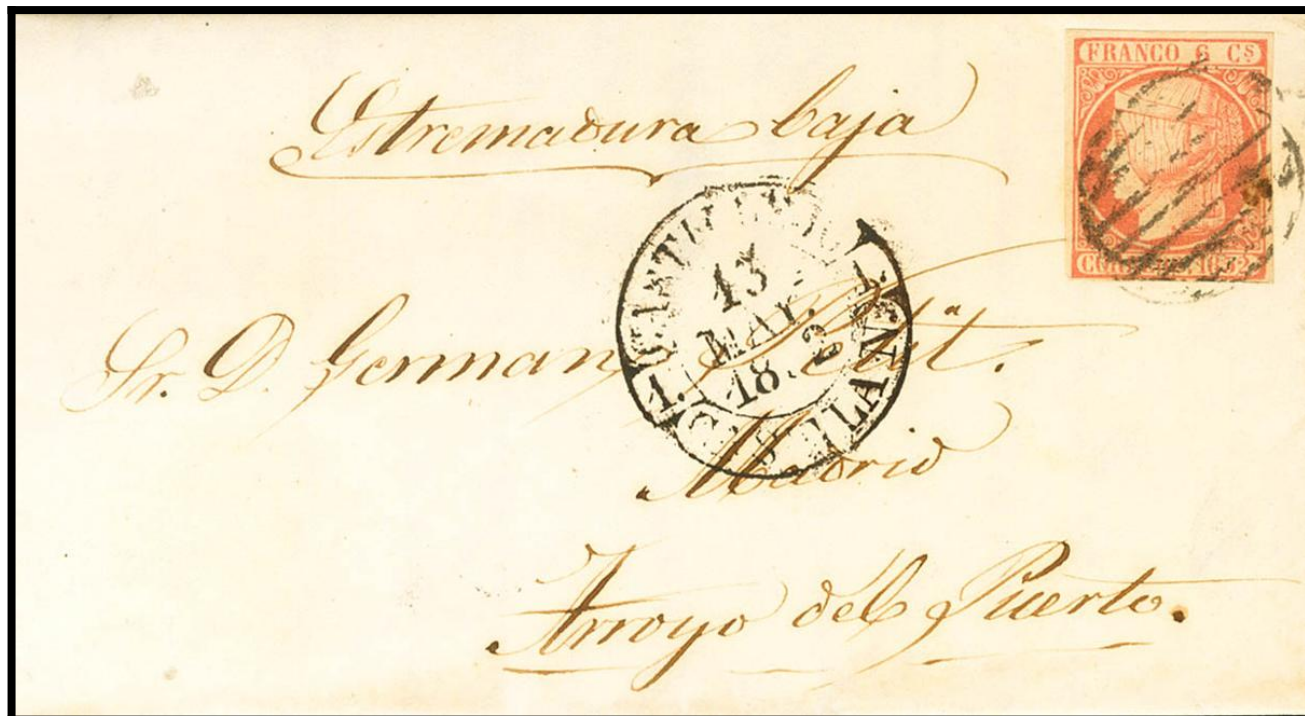 FRANCO 6 Cs
Estremadura baja
13
MAY.
18 2
Sr. D. German
Madrid
Arroyo del Puerto.